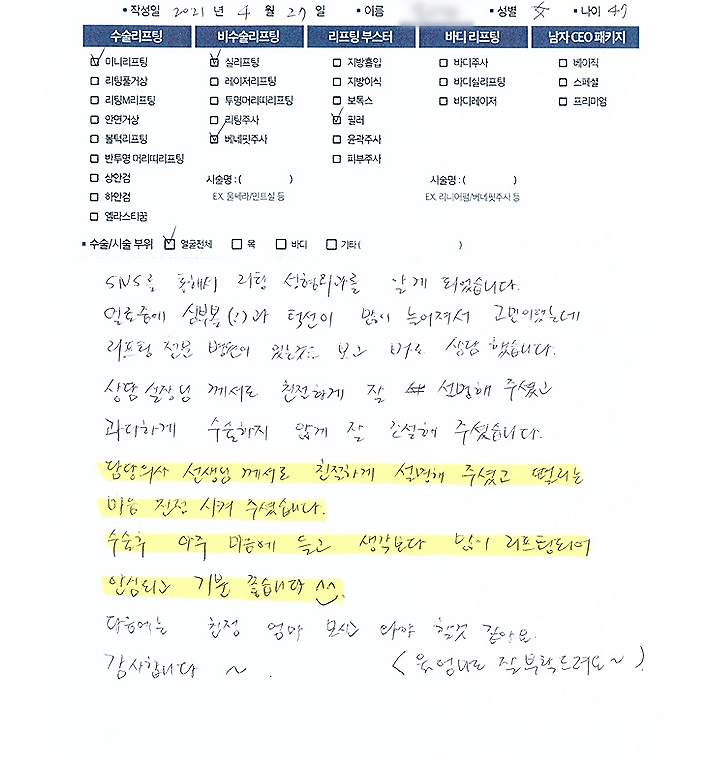 • 작성일 2021 년 4 월 27 일 • 이름 • 성별 女 • 나이 47
수술리프팅 비수술리프팅 리프팅 부스터 바디 리프팅 남자 CEO 패키지
미니리프팅 실리프팅 지방흡입 바디주사 베이직
리팅풀거상 레이저리프팅 지방이식 바디실리프팅 스페셜
리팅M리프팅 투명머리띠리프팅 보톡스 바디레이저 프리미엄
안면거상 리팅주사 필러
볼턱리프팅 베네핏주사 윤곽주사
반투명 머리띠리프팅 피부주사
상안검 시술명 : ( ) 시술명 : ( )
하안검 EX. 울쎄라/민트실 등 EX. 리니어펌/베네핏주사 등
엘라스티꿈
• 수술/시술 부위 얼굴전체 목 바디 기타( )
SNS를 통해서 리팅 성형외과를 알게 되었습니다.
심부볼(!)과 턱선이 많이 늘어져서 고민이었는데
리프팅 전문 병원이 있는것 보고 바로 상담 했습니다.
상담 실장님 께서도 친절하게 잘 설명해 주셨고
과다하게 수술하지 않게 잘 조절해 주셨습니다.
담당의사 선생님 께서도 친절하게 설명해 주셨고 떨리는
마음 진정 시켜 주셨습니다.
수술후 아주 마음에 들고 생각보다 많이 리프팅되어
안심되고 기분 좋습니다 ^^
다음에는 친정 엄마 모시고 와야 할것 같아요.
감사합니다 ~ . ( 엄마도 잘부탁드려요~ ).